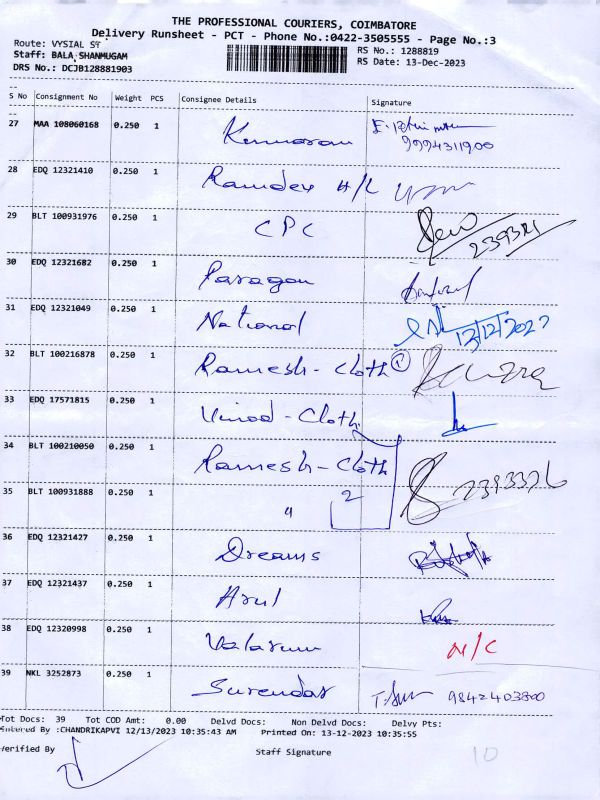 THE PROFESSIONAL COURIERS, COIMBATORE
Delivery Runsheet - PCT - Phone No.:0422-3505555 - Page No.:3
Route: VYSIAL ST
Staff: BALA SHANMUGAM
DRS No.: DCJB128881903
RS No.: 1288819
RS Date: 13-Dec-2023
S No Consignment No Weight PCS Consignee Details Signature
27 MAA 108060168 0.250 1 Kumaran 9994311900
28 EDQ 12321410 0.250 1 Ramdev H/L
29 BLT 100931976 0.250 1 CPC 239321
30 EDQ 12321682 0.250 1 Paragon
31 EDQ 12321049 0.250 1 National 12/12/2023
32 BLT 100216878 0.250 1 Ramesh-Cloth 1
33 EDQ 17571815 0.250 1 Vinod-Cloth
34 BLT 100210050 0.250 1 Ramesh-Cloth
35 BLT 100931888 0.250 1 " 2 2393326
36 EDQ 12321427 0.250 1 Dreams
37 EDQ 12321437 0.250 1 Arul
38 EDQ 12320998 0.250 1 Valarum N/C
39 NKL 3252873 0.250 1 Surendar 9842403800
Tot Docs: 39 Tot COD Amt: 0.00 Delvd Docs: Non Delvd Docs: Delvy Pts:
Entered By :CHANDRIKAPVI 12/13/2023 10:35:43 AM Printed On: 13-12-2023 10:35:55
Verified By Staff Signature
10